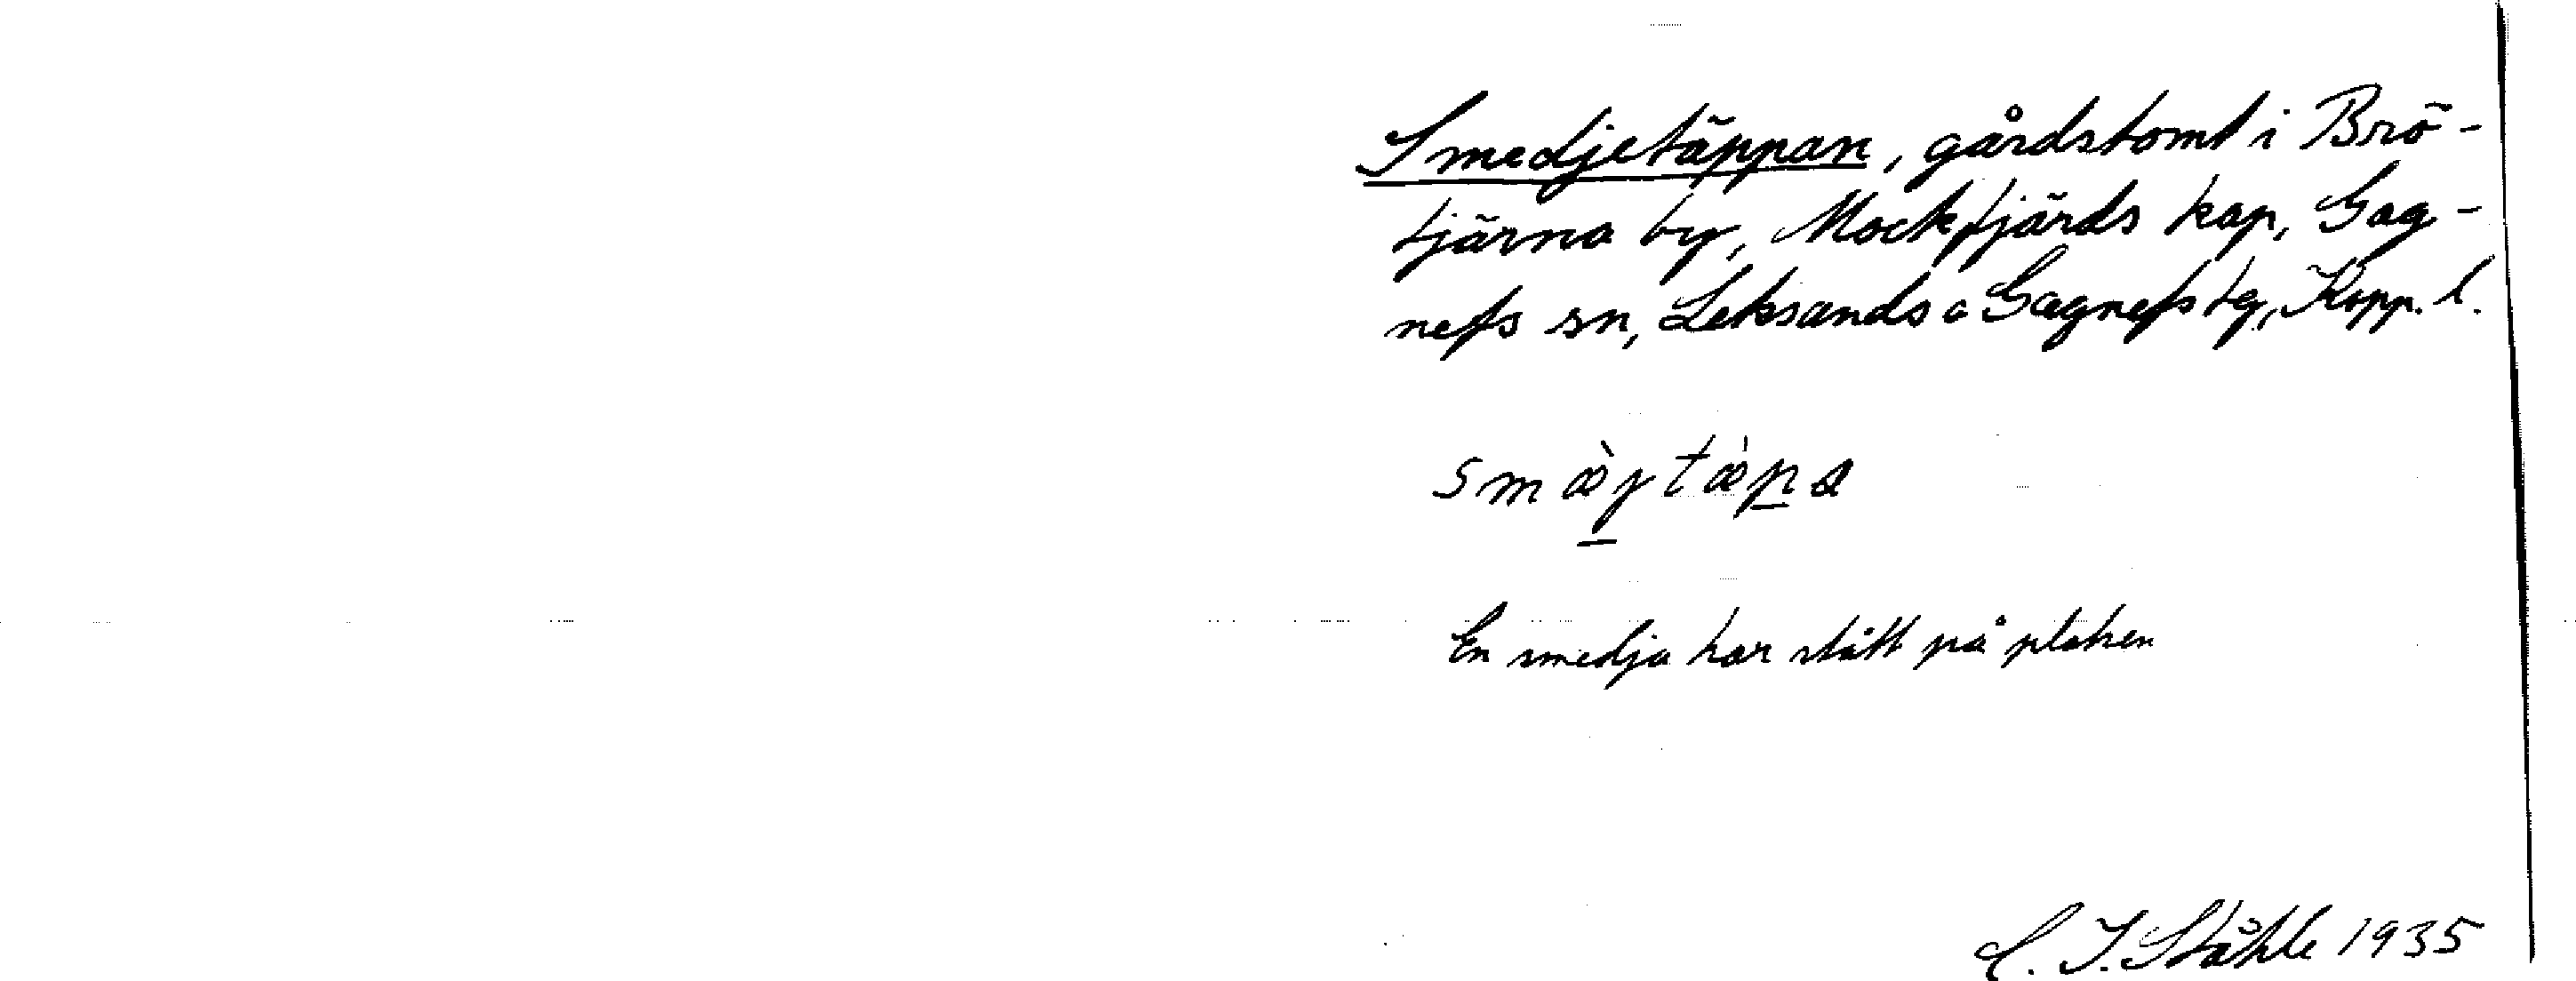 Smedjetäppan, gårdstomt i Brö-
tjärna by, Mockfjärds kap, Gag-
nefs sn, Leksands o Gagnefs tg, Kopp. l.
smæ̀jtæ̀pa
En smedja har stått på platsen
C. I. Ståhle 1935